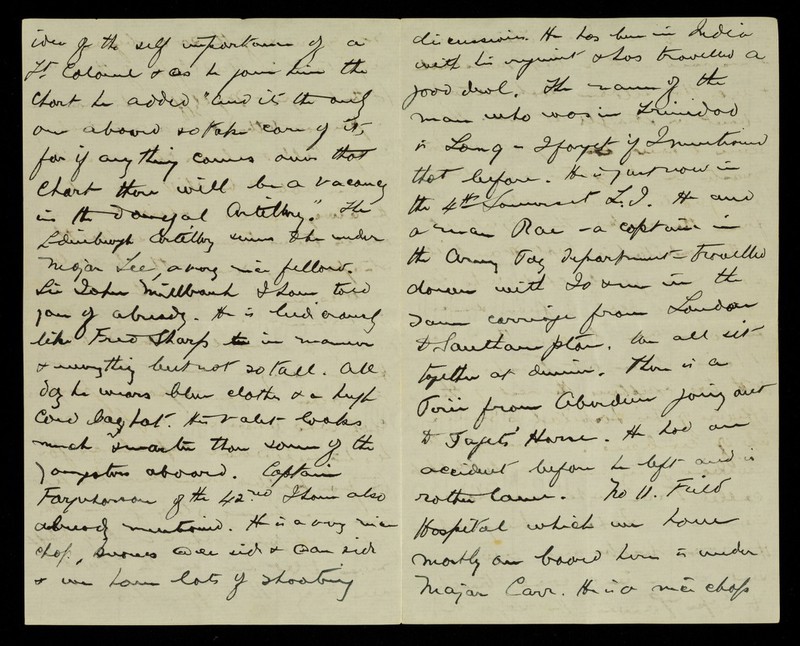 idea of the self importance of a
Lt Colonel & as he gave him the
Chart he added, "and it's the only
one aboard so take care of it,
for if anything comes over that
Chart there will be a vacancy
in the Donegal Artillery." The
Edinburgh Artillery seems to be under
Major Lee, a very nice fellow.
Sir John Millbank I have told
you of already. He is ludicrously
like Fred Sharp in manner
& everything but not so tall. All
day he wears blue clothes & a high
hat. His valet looks
much smarter than some of the
youngsters aboard. Captain
Farquharson of the 42nd I have also
already mentioned. He is a very nice
chap, knows Dee side & Don side
& we have lots of shooting
discussions. He has been in India
with his regiment & has travelled a
good deal. The name of the
man who was in Trinidad
is Long - I forget if I mentioned
that before. He is just now in
the 4th Somerset L.I. He and
a man Rae - a captain in
the Army Pay Department - travelled
down with Jo & me in the
same carriage from London
to Southampton. We all sit
together at dinner. There is a
from Aberdeen going out
to Paget's Horse. He had an
accident before he left and is
rather lame. No 11. Field
Hospital which we have
mostly on board here is under
Major Carr. He is a nice chap